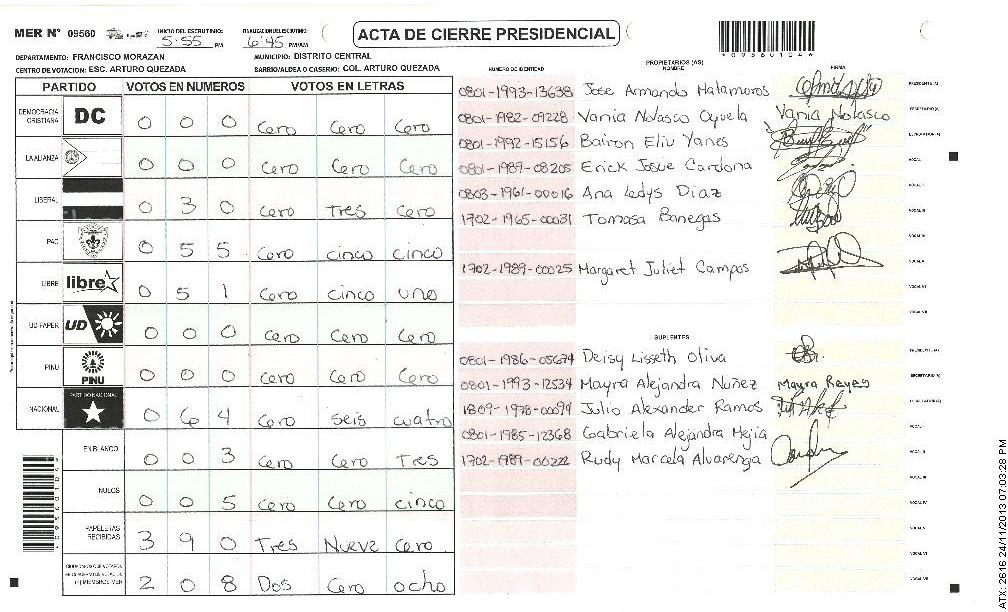 MER Nº 09560
INICIO DEL ESCRUTINIO: 5:55 PM
FINALIZACION DEL ESCRUTINIO: 6:45 PM/AM
ACTA DE CIERRE PRESIDENCIAL
DEPARTAMENTO: FRANCISCO MORAZAN
MUNICIPIO: DISTRITO CENTRAL
CENTRO DE VOTACION: ESC. ARTURO QUEZADA
BARRIO/ALDEA O CASERIO: COL. ARTURO QUEZADA
PARTIDO VOTOS EN NUMEROS VOTOS EN LETRAS
DEMOCRACIA CRISTIANA DC 0 0 0 Cero Cero Cero
LA ALIANZA 0 0 0 Cero Cero Cero
LIBERAL 0 3 0 Cero Tres Cero
PAC 0 5 5 Cero cinco cinco
LIBRE libre 0 5 1 Cero cinco uno
UD FAPER UD 0 0 0 Cero Cero Cero
PINU PINU 0 0 0 Cero Cero Cero
NACIONAL PARTIDO NACIONAL 0 6 4 Cero seis cuatro
EN BLANCO 0 0 3 Cero Cero Tres
NULOS 0 0 5 Cero Cero cinco
PAPELETAS RECIBIDAS 3 9 0 Tres Nueve cero
2 0 8 Dos Cero ocho
PROPIETARIOS (AS)
NUMERO DE IDENTIDAD NOMBRE FIRMA
0801-1993-13638 Jose Armando Matamoros PRESIDENTE (A)
0801-1982-09228 Vania Nolasco Oyuela Vania Nolasco SECRETARIO (A)
0801-1992-15156 Bairon Eliu Yanes ESCRUTADOR (A)
0801-1989-08205 Erick Josue Cardona VOCAL I
0803-1961-00016 Ana Ledys Diaz VOCAL II
1702-1965-00031 Tomasa Banegas VOCAL III
VOCAL IV
1702-1989-00025 Margaret Juliet Campos VOCAL V
VOCAL VI
VOCAL VII
SUPLENTES
0801-1986-05674 Deisy Lisseth Oliva PRESIDENTE (A)
0801-1993-12534 Mayra Alejandra Nuñez Mayra Reyes SECRETARIO (A)
1809-1978-00094 Julio Alexander Ramos ESCRUTADOR (A)
0801-1985-12368 Gabriela Alejandra Mejia VOCAL I
1702-1989-00222 Rudy Marcela Alvarenga VOCAL II
VOCAL III
VOCAL IV
VOCAL V
VOCAL VI
VOCAL VII
ATX: 2616 24/11/2013 07:03:28 PM